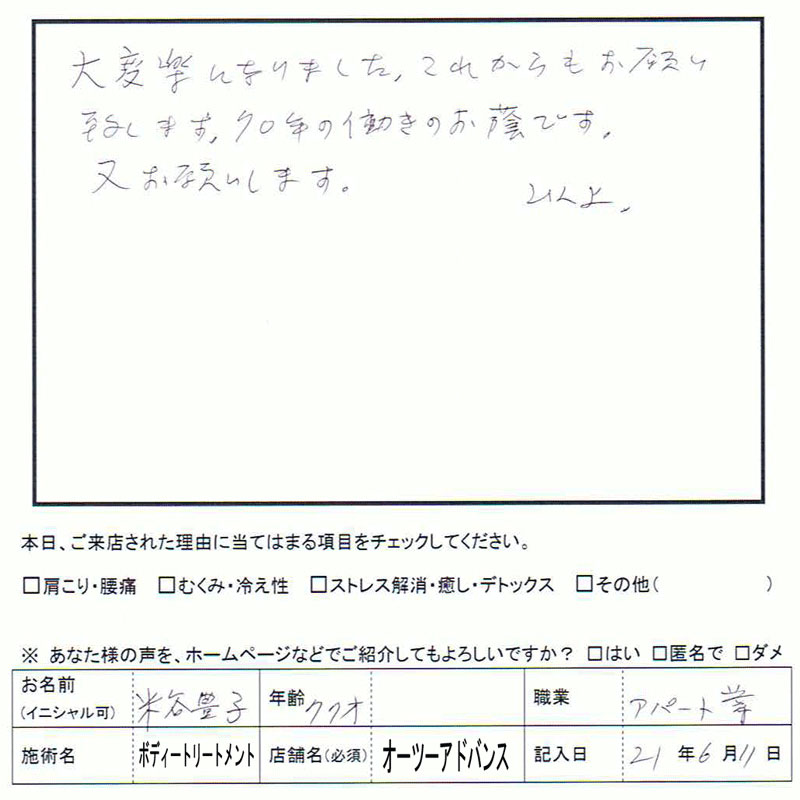 大変楽になりました、これからもお願い
致します。70年の働きのお蔭です。
又お願いします。
本日、ご来店された理由に当てはまる項目をチェックしてください。
□肩こり・腰痛 □むくみ・冷え性 □ストレス解消・癒し・デトックス □その他( )
※ あなた様の声を、ホームページなどでご紹介してもよろしいですか？ □はい □匿名で □ダメ
お名前 (イニシャル可) 米谷豊子 年齢 77才 職業 アパート業
施術名 ボディートリートメント 店舗名(必須) オーツーアドバンス 記入日 21年6月11日